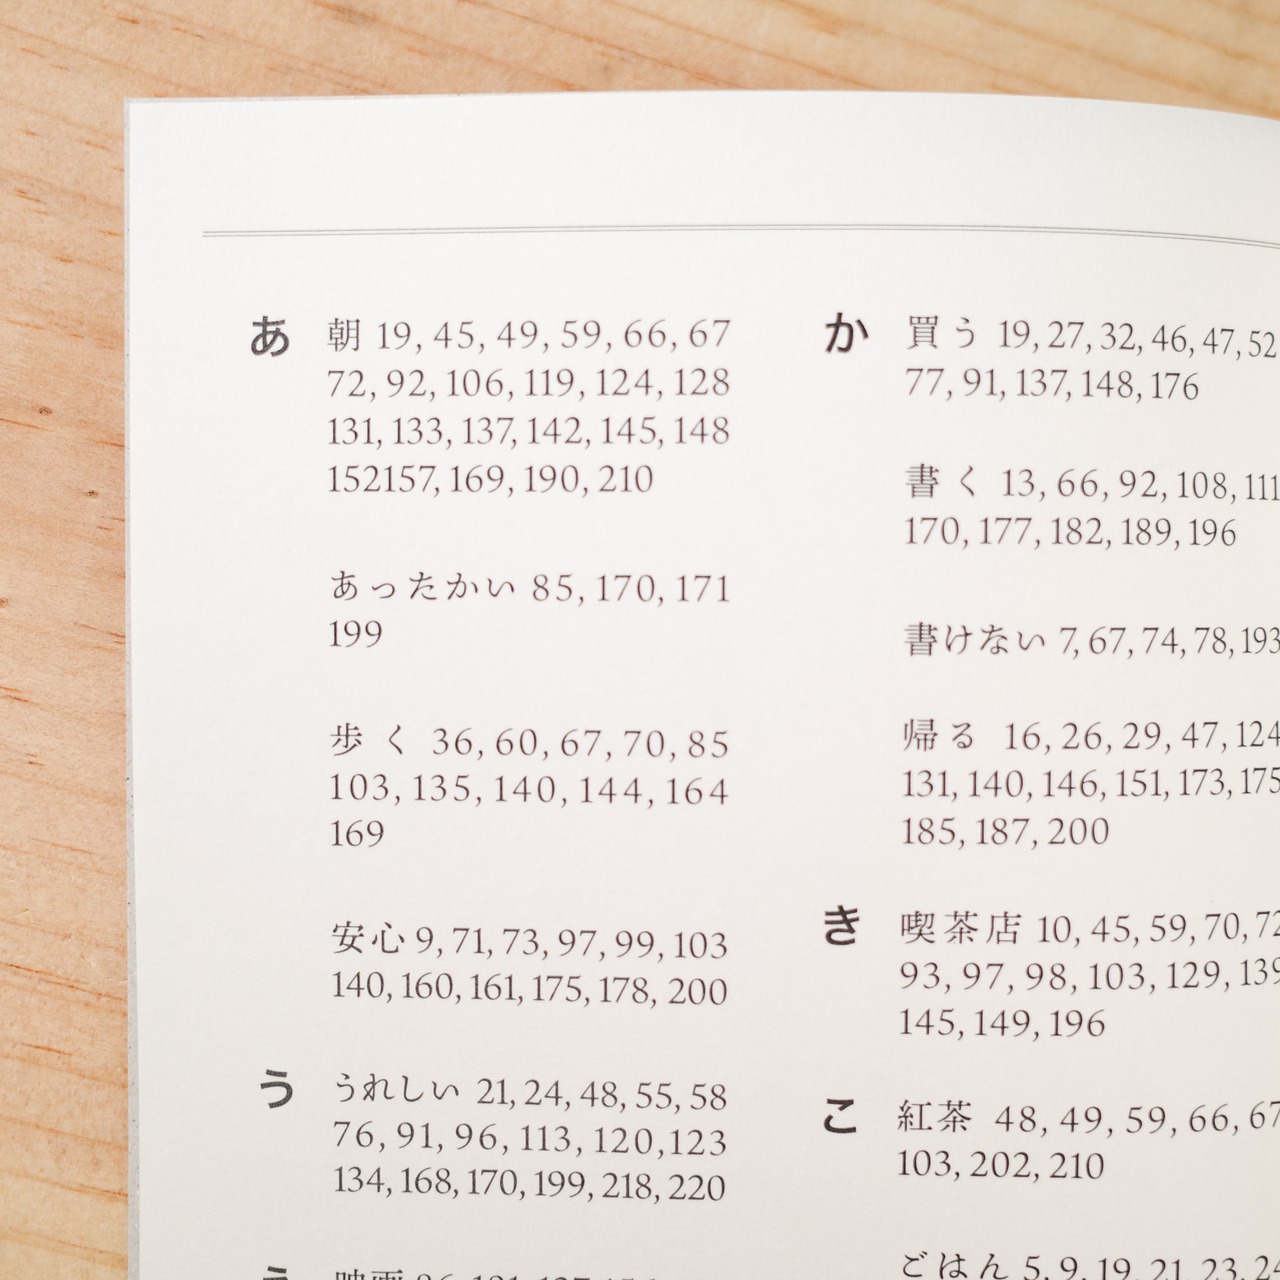 あ 朝 19, 45, 49, 59, 66, 67
72, 92, 106, 119, 124, 128
131, 133, 137, 142, 145, 148
152157, 169, 190, 210
あったかい 85, 170, 171
199
歩く 36, 60, 67, 70, 85
103, 135, 140, 144, 164
169
安心 9, 71, 73, 97, 99, 103
140, 160, 161, 175, 178, 200
う うれしい 21, 24, 48, 55, 58
76, 91, 96, 113, 120,123
134, 168, 170, 199, 218, 220
映画
か 買う 19, 27, 32, 46, 47, 52
77, 91, 137, 148, 176
書く 13, 66, 92, 108, 111
170, 177, 182, 189, 196
書けない 7, 67, 74, 78, 193
帰る 16, 26, 29, 47, 124
131, 140, 146, 151, 173, 175
185, 187, 200
き 喫茶店 10, 45, 59, 70, 72
93, 97, 98, 103, 129, 139
145, 149, 196
こ 紅茶 48, 49, 59, 66, 67
103, 202, 210
ごはん 5, 9, 19, 21, 23, 24